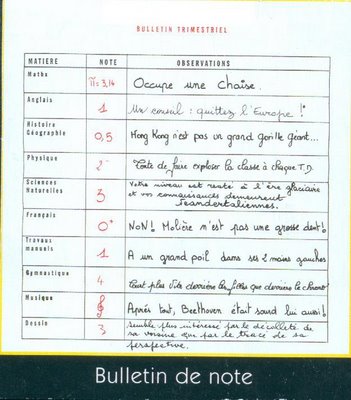 BULLETIN TRIMESTRIEL
MATIERE NOTE OBSERVATIONS
Maths π = 3,14 Occupe une chaise.
Anglais 1 Un conseil : quittez l'Europe !
Histoire
Géographie 0,5 Hong Kong n'est pas un grand gorille géant...
Physique 2⁻ Tente de faire exploser la classe à chaque T.D.
Sciences
Naturelles 3 Votre niveau est resté à l'ère glaciaire
et vos connaissances demeurent
neandertaliennes.
Français 0⁺ NON! Molière n'est pas une grosse dent!
Travaux
manuels 1 A un grand poil dans ses 2 mains gauches
Gymnastique 4 Court plus vite derrière les filles que derrière le chrono!
Musique Après tout, Beethoven était sourd lui aussi!
Dessin 3 Semble plus intéressé par le décolleté de
sa voisine que par le tracé de sa
perspective.
Bulletin de note